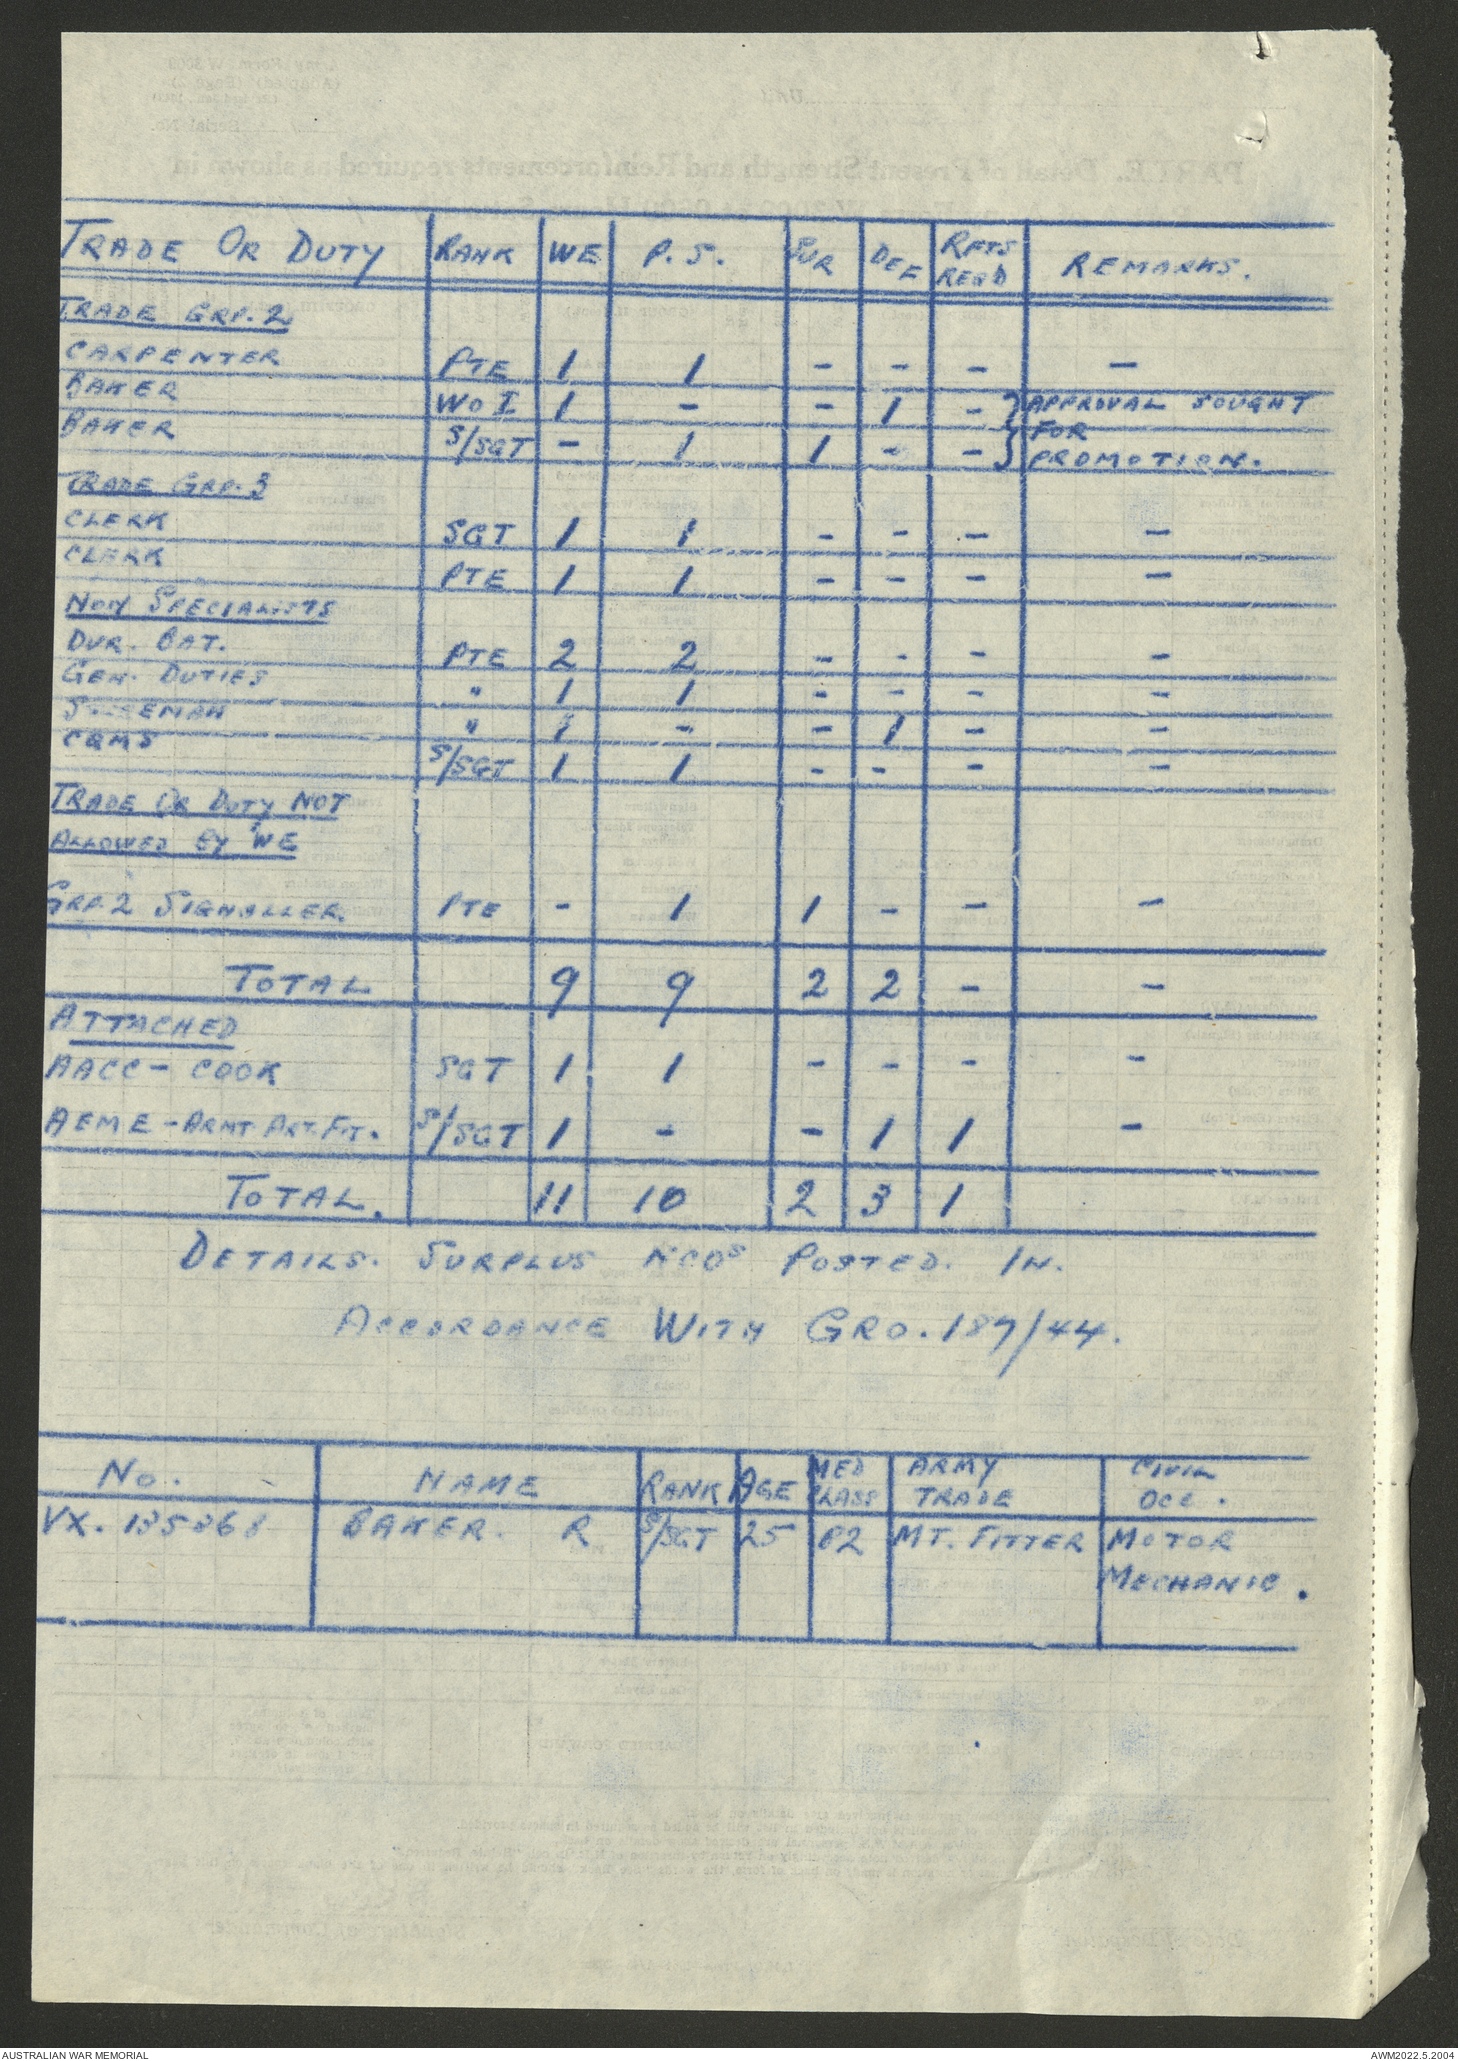 TRADE OR DUTY RANK WE P.S. SUR DEF RFTS REQD REMARKS.
TRADE GRP. 2
CARPENTER PTE 1 1 - - - -
BAKER WO I 1 - - 1 - } APPROVAL SOUGHT
FOR
BAKER S/SGT - 1 1 - - } PROMOTION.
TRADE GRP. 3
CLERK SGT 1 1 - - - -
CLERK PTE 1 1 - - - -
NON SPECIALISTS
DVR. BAT. PTE 2 2 - - - -
GEN. DUTIES " 1 1 - - - -
" 1 - - 1 - -
CQMS S/SGT 1 1 - - - -
TRADE OR DUTY NOT
ALLOWED BY WE
GRP. 2 SIGNALLER PTE - 1 1 - - -
TOTAL 9 9 2 2 - -
ATTACHED
AACC - COOK SGT 1 1 - - - -
AEME - ARMT. ART. FIT. S/SGT 1 - - 1 1 -
TOTAL. 11 10 2 3 1
DETAILS. SURPLUS NCOS POSTED. IN.
ACCORDANCE WITH GRO. 187/44.
No. NAME RANK AGE MED CLASS ARMY TRADE CIVIL OCC.
BAKER. R S/SGT 25 B2 MT. FITTER MOTOR
MECHANIC.
AUSTRALIAN WAR MEMORIAL AWM2022.5.2004